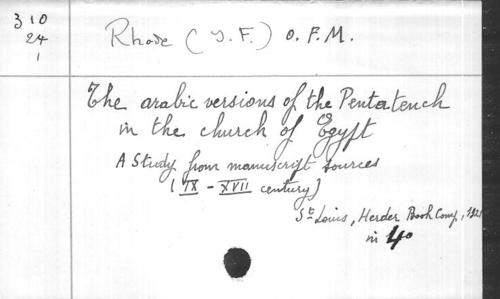 310
24
1
Rhode (J. F.) O. F. M.
The arabic versions of the Pentateuch
in the church of Egypt
A Study from manuscript sources
(IX - XVII century)
St Louis, Herder Book Comp., 1921
in 4o